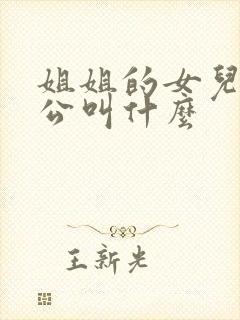 姐姐的女兒
公叫什麼
王新光